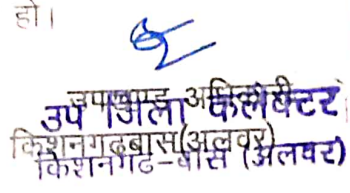 हो।
उपखण्ड अधिकारी
उप जिला कलेक्टर
किशनगढबास(अलवर)
किशनगढ-बास (अलवर)